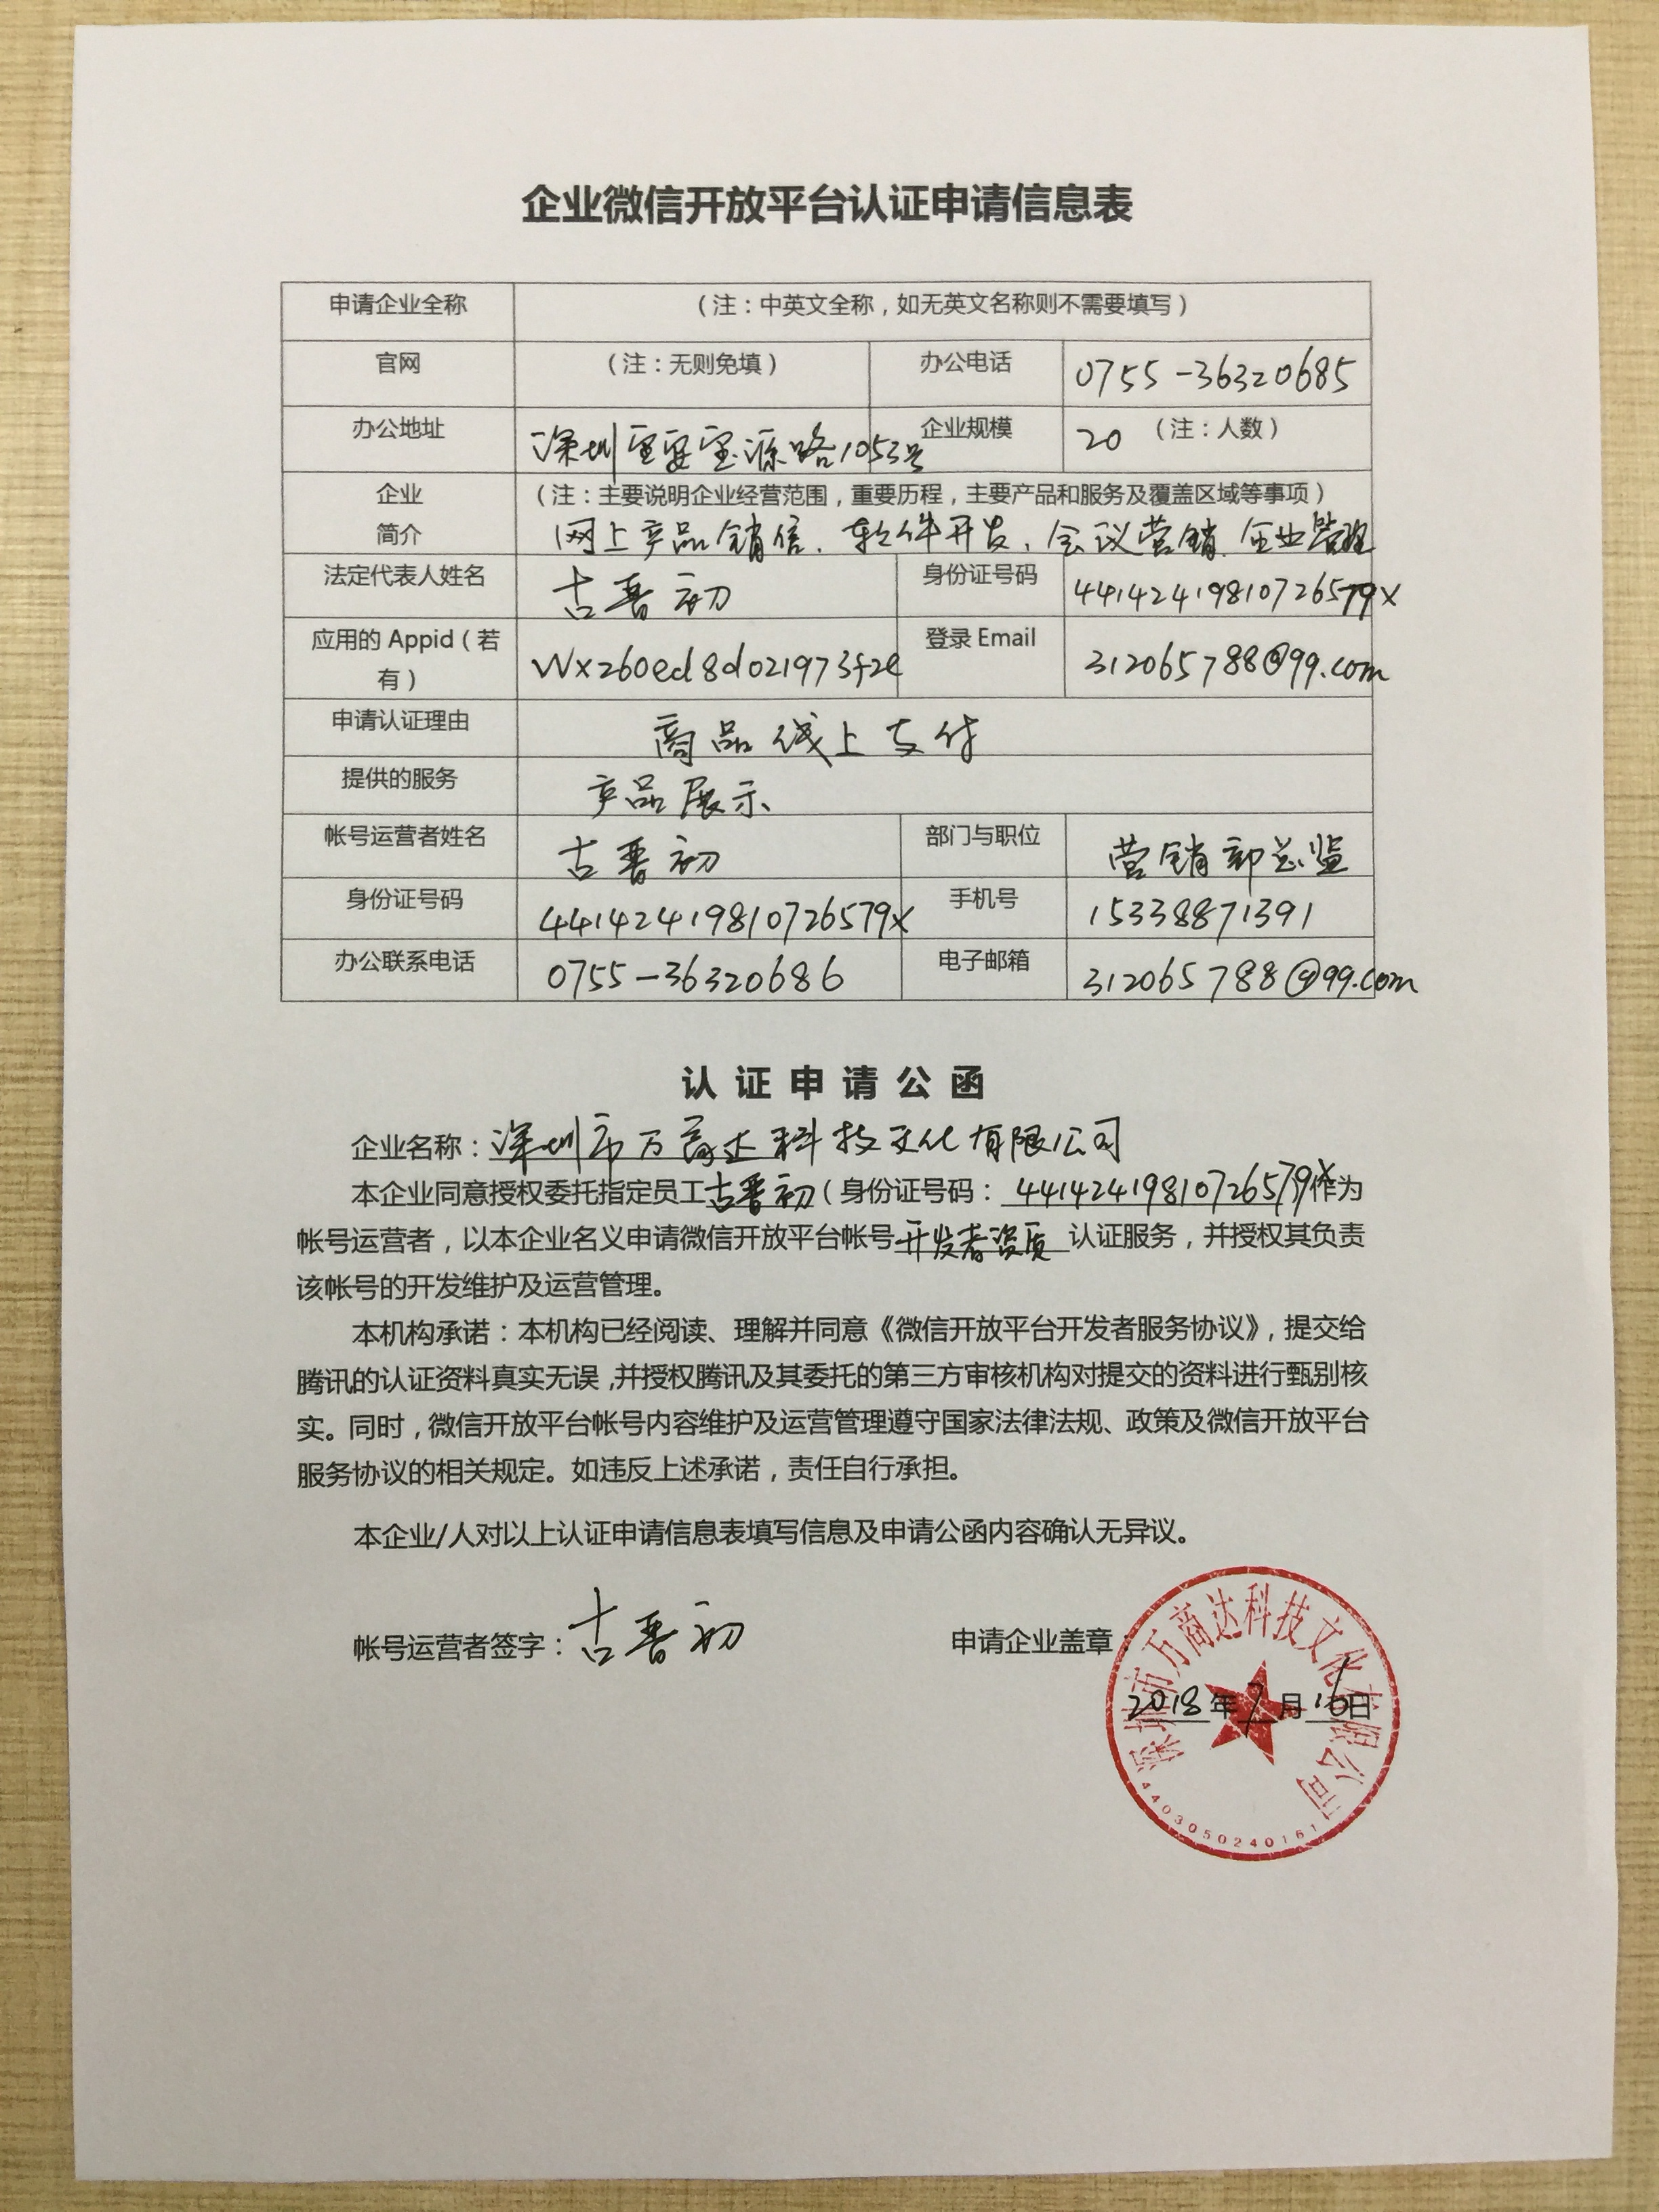 企业微信开放平台认证申请信息表
申请企业全称 （注：中英文全称，如无英文名称则不需要填写）
官网 （注：无则免填） 办公电话 0755-36320685
办公地址 深圳宝安宝源路1053号 企业规模 20 （注：人数）
企业 （注：主要说明企业经营范围，重要历程，主要产品和服务及覆盖区域等事项）
简介 网上产品销信、软件开发、会议营销、企业管理
法定代表人姓名 古晋初 身份证号码 44142419810726579X
应用的 Appid（若 wx260ed8d021973f2e 登录 Email 312065788@99.com
有）
申请认证理由 商品线上支付
提供的服务 产品展示
帐号运营者姓名 古晋初 部门与职位 营销部总监
身份证号码 44142419810726579X 手机号 15338871391
办公联系电话 0755-36320686 电子邮箱 312065788@99.com
认证申请公函
企业名称：深圳市万商达科技文化有限公司
本企业同意授权委托指定员工古晋初（身份证号码： 44142419810726579X作为
帐号运营者，以本企业名义申请微信开放平台帐号开发者资质 认证服务，并授权其负责
该帐号的开发维护及运营管理。
本机构承诺：本机构已经阅读、理解并同意《微信开放平台开发者服务协议》，提交给
腾讯的认证资料真实无误，并授权腾讯及其委托的第三方审核机构对提交的资料进行甄别核
实。同时，微信开放平台帐号内容维护及运营管理遵守国家法律法规、政策及微信开放平台
服务协议的相关规定。如违反上述承诺，责任自行承担。
本企业/人对以上认证申请信息表填写信息及申请公函内容确认无异议。
帐号运营者签字：古晋初 申请企业盖章：
2018年7月16日
深圳市万商达科技文化有限公司
4403050240161